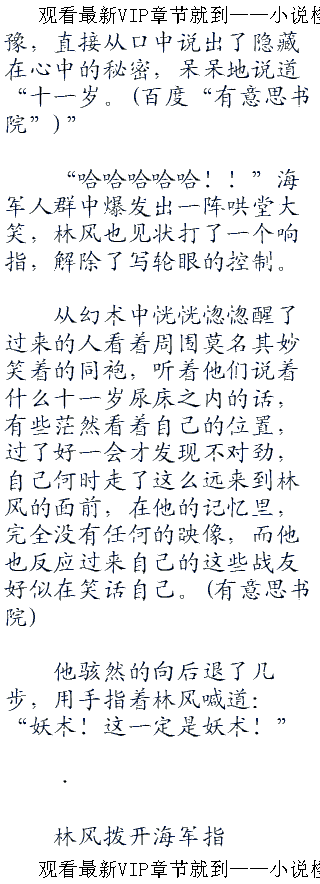 观看最新VIP章节就到——小说
豫，直接从口中说出了隐藏
在心中的秘密，呆呆地说道
“十一岁。(百度“有意思书
院”)”
“哈哈哈哈哈！！”海
军人群中爆发出一阵哄堂大
笑，林风也见状打了一个响
指，解除了写轮眼的控制。
从幻术中恍恍惚惚醒了
过来的人看着周围莫名其妙
笑着的同袍，听着他们说着
什么十一岁尿床之内的话，
有些茫然看着自己的位置，
过了好一会才发现不对劲，
自己何时走了这么远来到林
风的面前，在他的记忆里，
完全没有任何的映像，而他
也反应过来自己的这些战友
好似在笑话自己。(有意思书
院)
他骇然的向后退了几
步，用手指着林风喊道：
“妖术！这一定是妖术！”
.
林风拨开海军指
观看最新VIP章节就到——小说